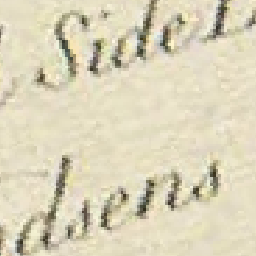 Side
dsens